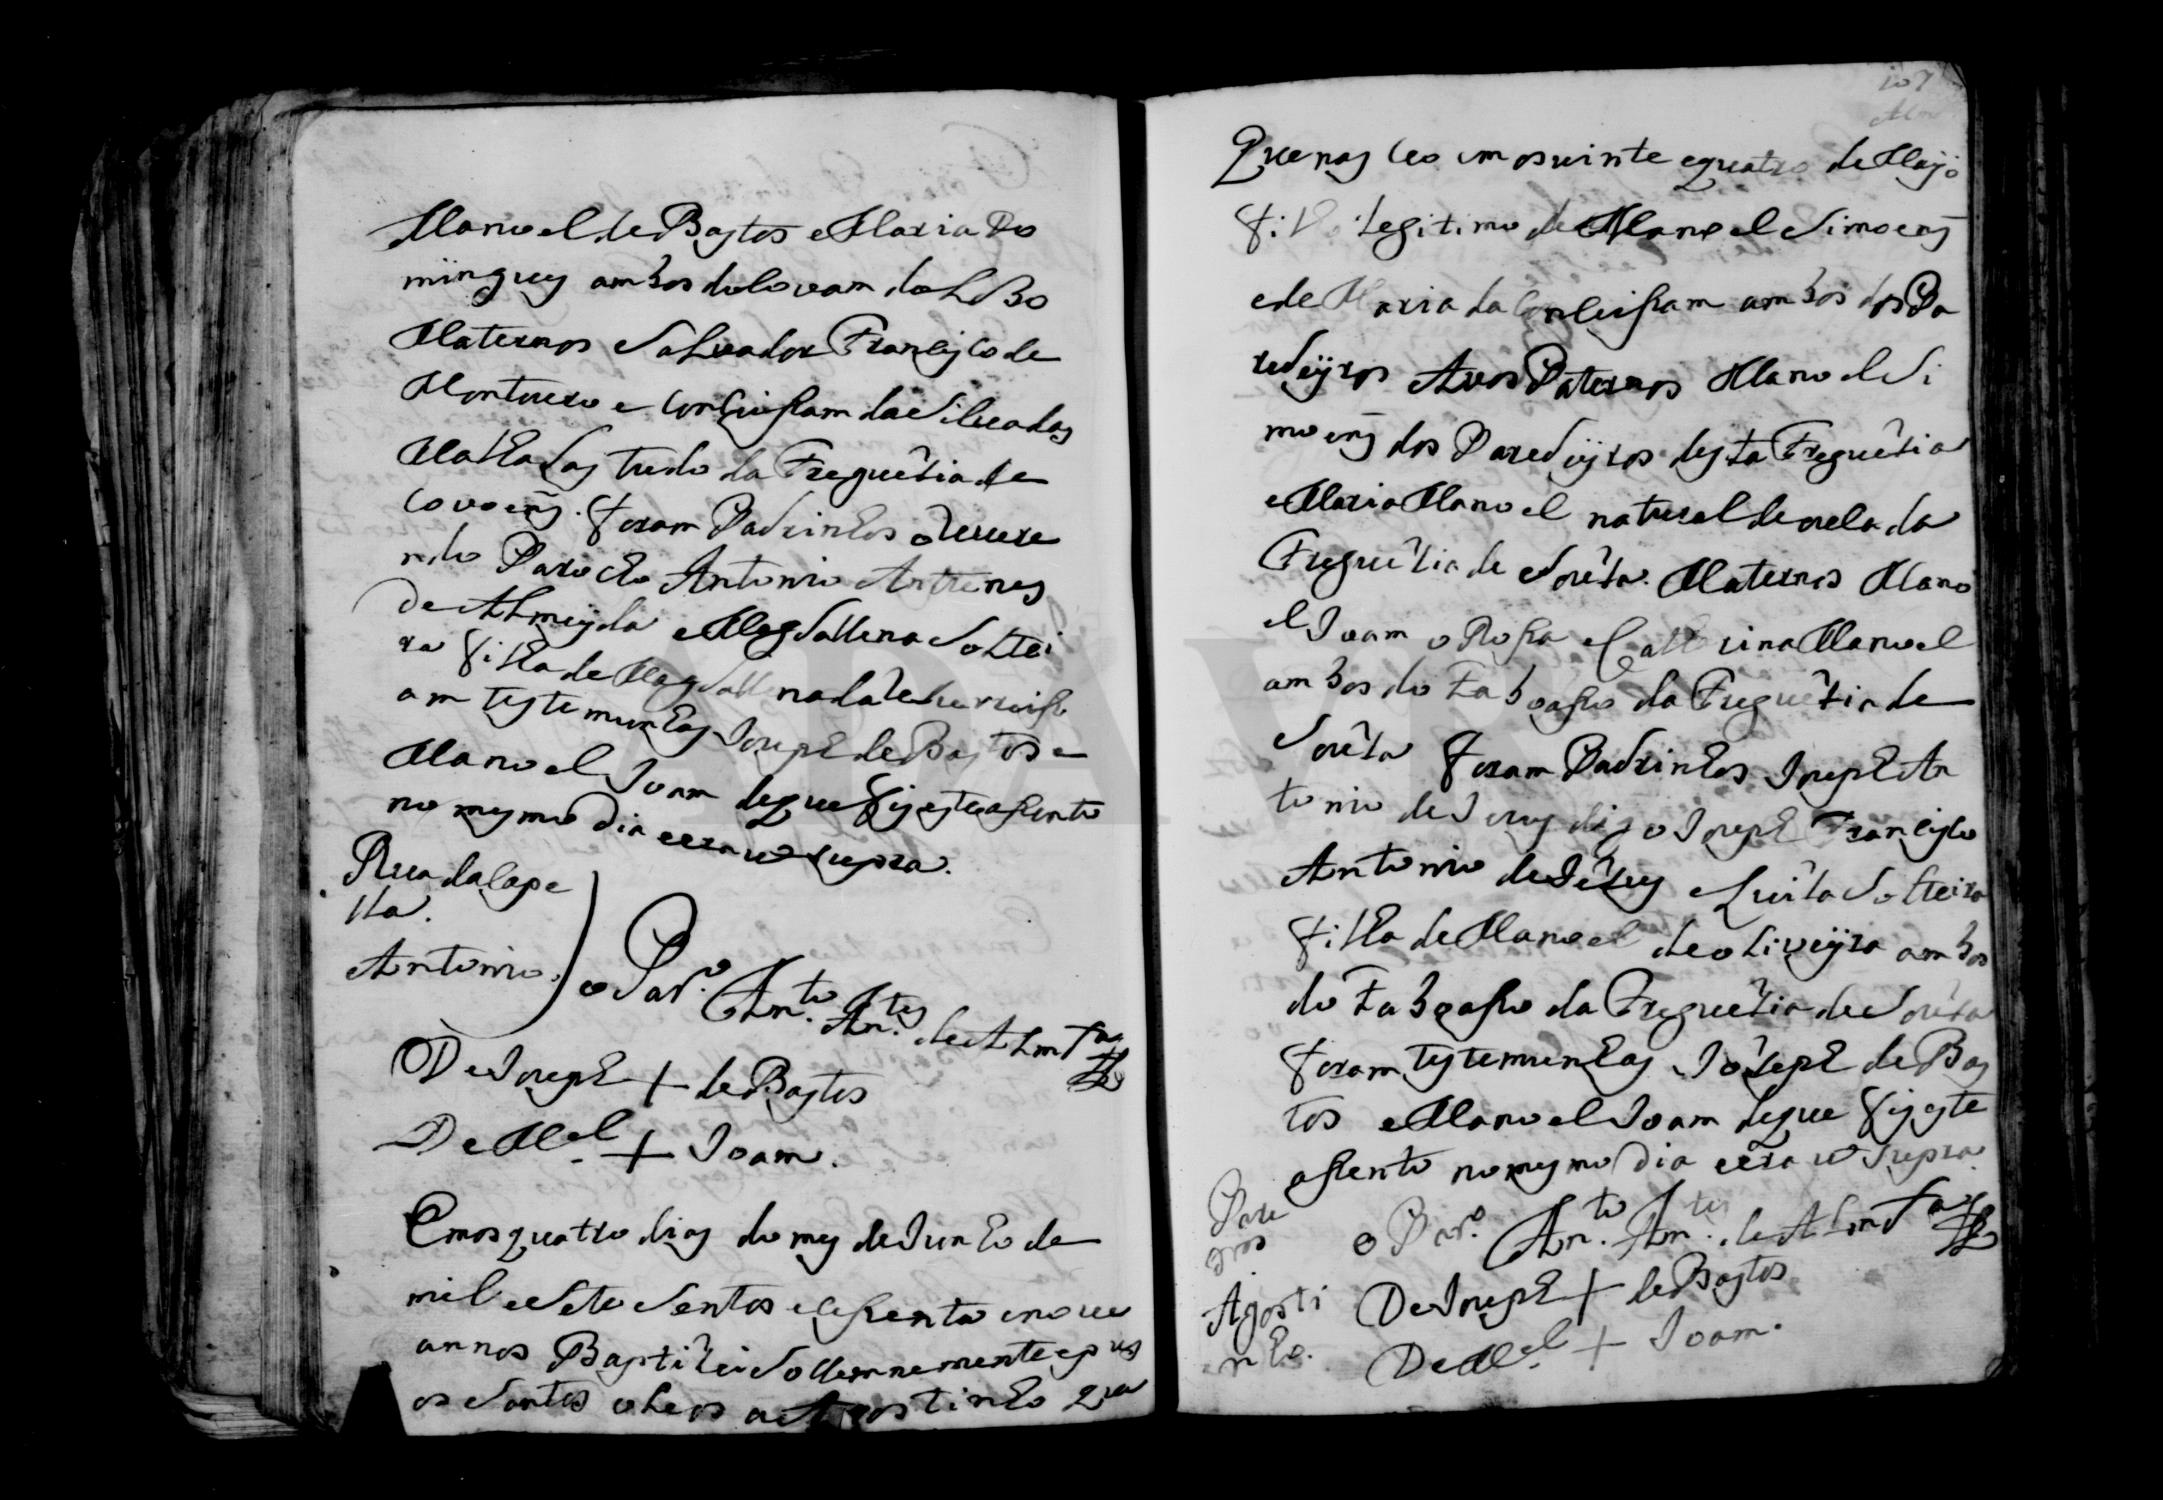 Manoel de Bastos e Maria Do
mingues ambos do Covam do Lobo
Maternos Salvador Francisco de
Montouro e Conceissam da Silva das
Malhadas tudo da Freguezia de
Covoens. foram Padrinhos o Revere
ndo Parocho Antonio Antunes
de Almeyda e Magdallena Soltei
ra filha de Magdallena da
am testemunhas Joseph de Bastos e
Manoel Joam de que fis este assento
no mesmo dia e era ut supra.
Rua da Cape
lla.
Antonio.
o Par.º An.to An.tes de Almda
De Joseph + de Bastos
De Mel. + Joam.
Em os quatro dias do mes de Junho de
mil e sete sentos e sessenta e nove
annos Baptizei sollemnemente e pus
os santos oleos a Agostinho que
107
Que nasceo em os vinte e quatro de Mayo
filho legitimo de Manoel Simoens
e de Maria da Conceissam ambos dos Pa
redeyros Avos Paternos Manoel Si
moens dos Paredeyros desta Freguezia
e Maria Manoel natural de da
Freguezia de Soza. Maternos Mano
el Joam o Rosa e Catherina Manoel
ambos do Taboasso da Freguezia de
Soza foram Padrinhos Joseph An
tonio de Jesus digo Joseph Francisco
Antonio de Jezus e Luiza Solteira
filha de Manoel de oliveyra ambos
do Taboasso da Freguezia de Soza
foram testemunhas Joseph de Bas
tos e Manoel Joam de que fis este
assento no mesmo dia e era ut supra
Pare
yros
Agosti
nho.
o Par.º An.to An.tes de Almda
De Joseph + de Bastos
De Mel. + Joam.